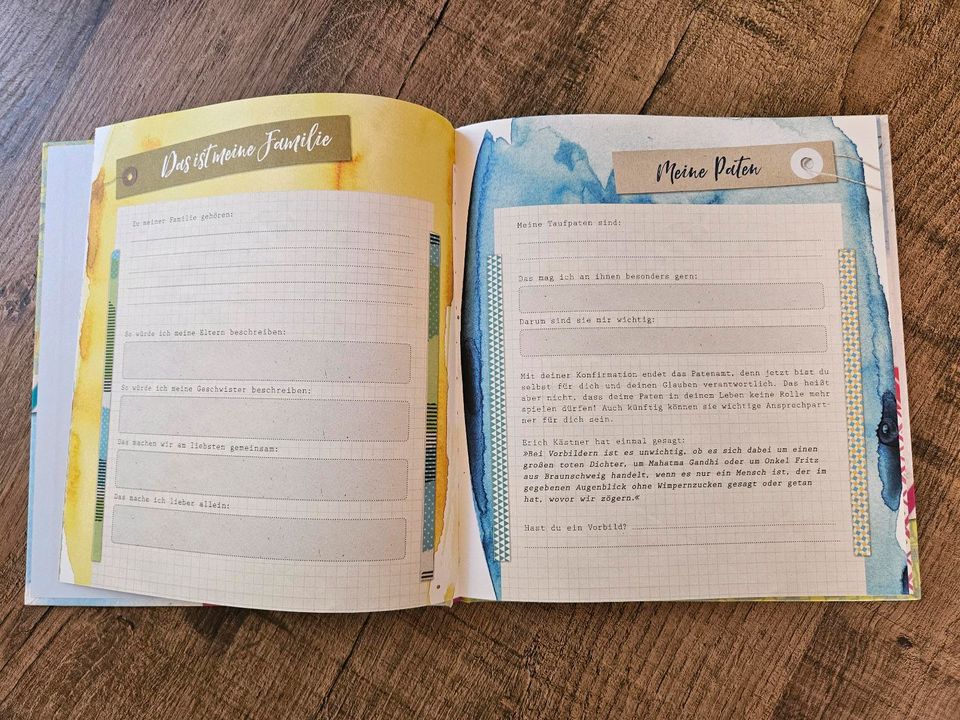 Das ist meine Familie
Zu meiner Familie gehören:
So würde ich meine Eltern beschreiben:
So würde ich meine Geschwister beschreiben:
Das machen wir am liebsten gemeinsam:
Das mache ich lieber allein:
Meine Paten
Meine Taufpaten sind:
Das mag ich an ihnen besonders gern:
Darum sind sie mir wichtig:
Mit deiner Konfirmation endet das Patenamt, denn jetzt bist du
selbst für dich und deinen Glauben verantwortlich. Das heißt
aber nicht, dass deine Paten in deinem Leben keine Rolle mehr
spielen dürfen! Auch künftig können sie wichtige Ansprechpart-
ner für dich sein.
Erich Kästner hat einmal gesagt:
»Bei Vorbildern ist es unwichtig, ob es sich dabei um einen
großen toten Dichter, um Mahatma Gandhi oder um Onkel Fritz
aus Braunschweig handelt, wenn es nur ein Mensch ist, der im
gegebenen Augenblick ohne Wimpernzucken gesagt oder getan
hat, wovor wir zögern.«
Hast du ein Vorbild?